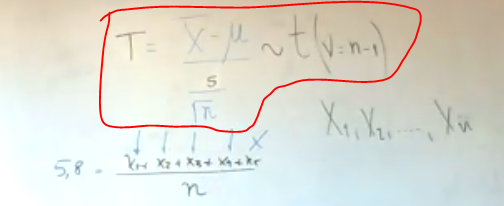 T = X̄ - μ / s / √n ~ t(v=n-1)
X₁, X₂, ..., Xn
X
5,8 = x₁+ x₂+ x₃+ x₄+ x₅ / n